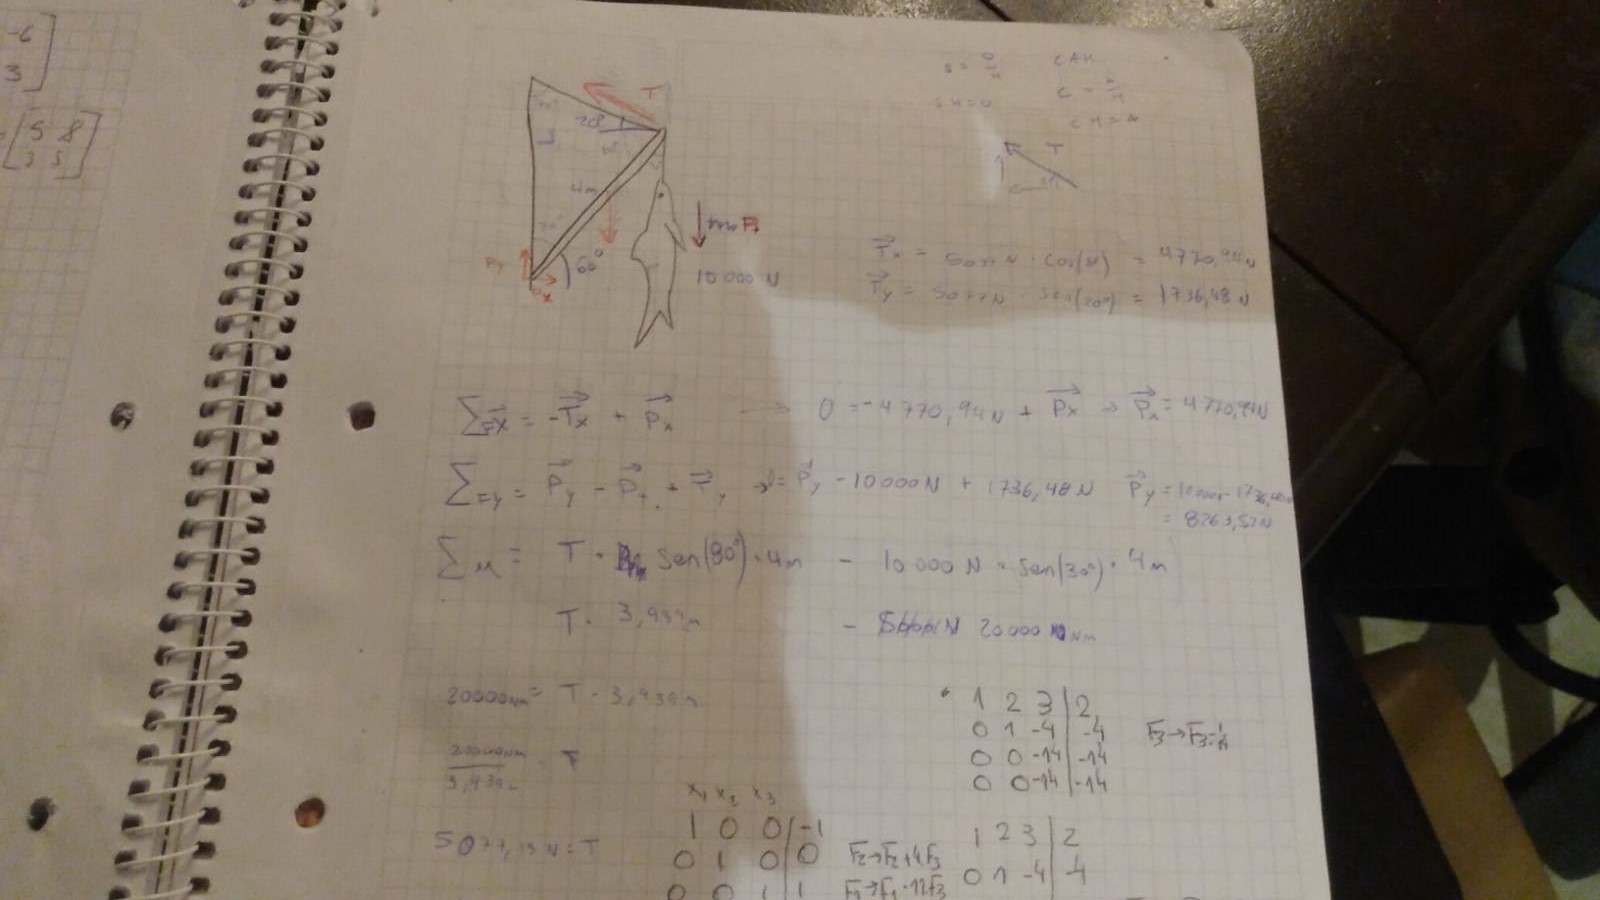 -6
3
= [5 8
3 5]
CAH
T
20°
T
4m
Py
60°
10 000 N
Px
Tx = 5077N · cos(20) = 4770,94N
Ty = 5077N · sen(20°) = 1736,48 N
ΣFx = -Tx + Px → 0 = -4770,94N + Px → Px = 4770,94N
ΣFy = Py - Pt + Ty → 0 = Py - 10000N + 1736,48N Py = 10000 - 1736,48N
= 8263,52N
ΣM = T · sen(80°) · 4m - 10 000 N · sen(30°) · 4m
T · 3,939m - 20000 Nm
20000Nm = T · 3,939m
20000Nm / 3,939m = T
5077,13 N = T
1 2 3 | 2
0 1 -4 | -4
0 0 -14 | -14
0 0 -14 | -14
x1 x2 x3
1 0 0 | -1
0 1 0 | 0 F2→F2+4F3
0 0 1 | 1
1 2 3 | 2
0 1 -4 | -4